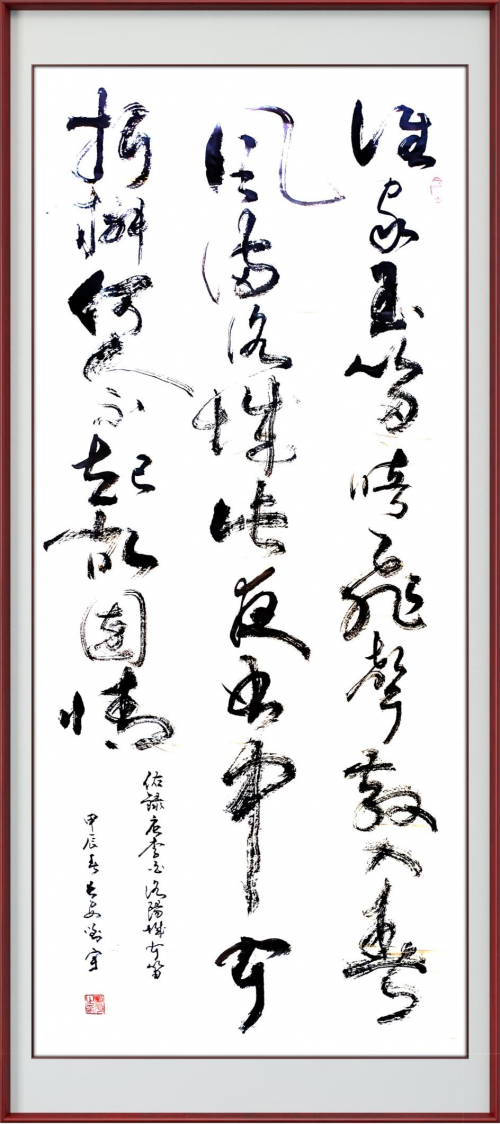 誰家玉笛暗飛聲散入春
風滿洛城此夜曲中聞
折柳何人不起故園情
錄唐李白洛陽城聞笛
甲辰春長安